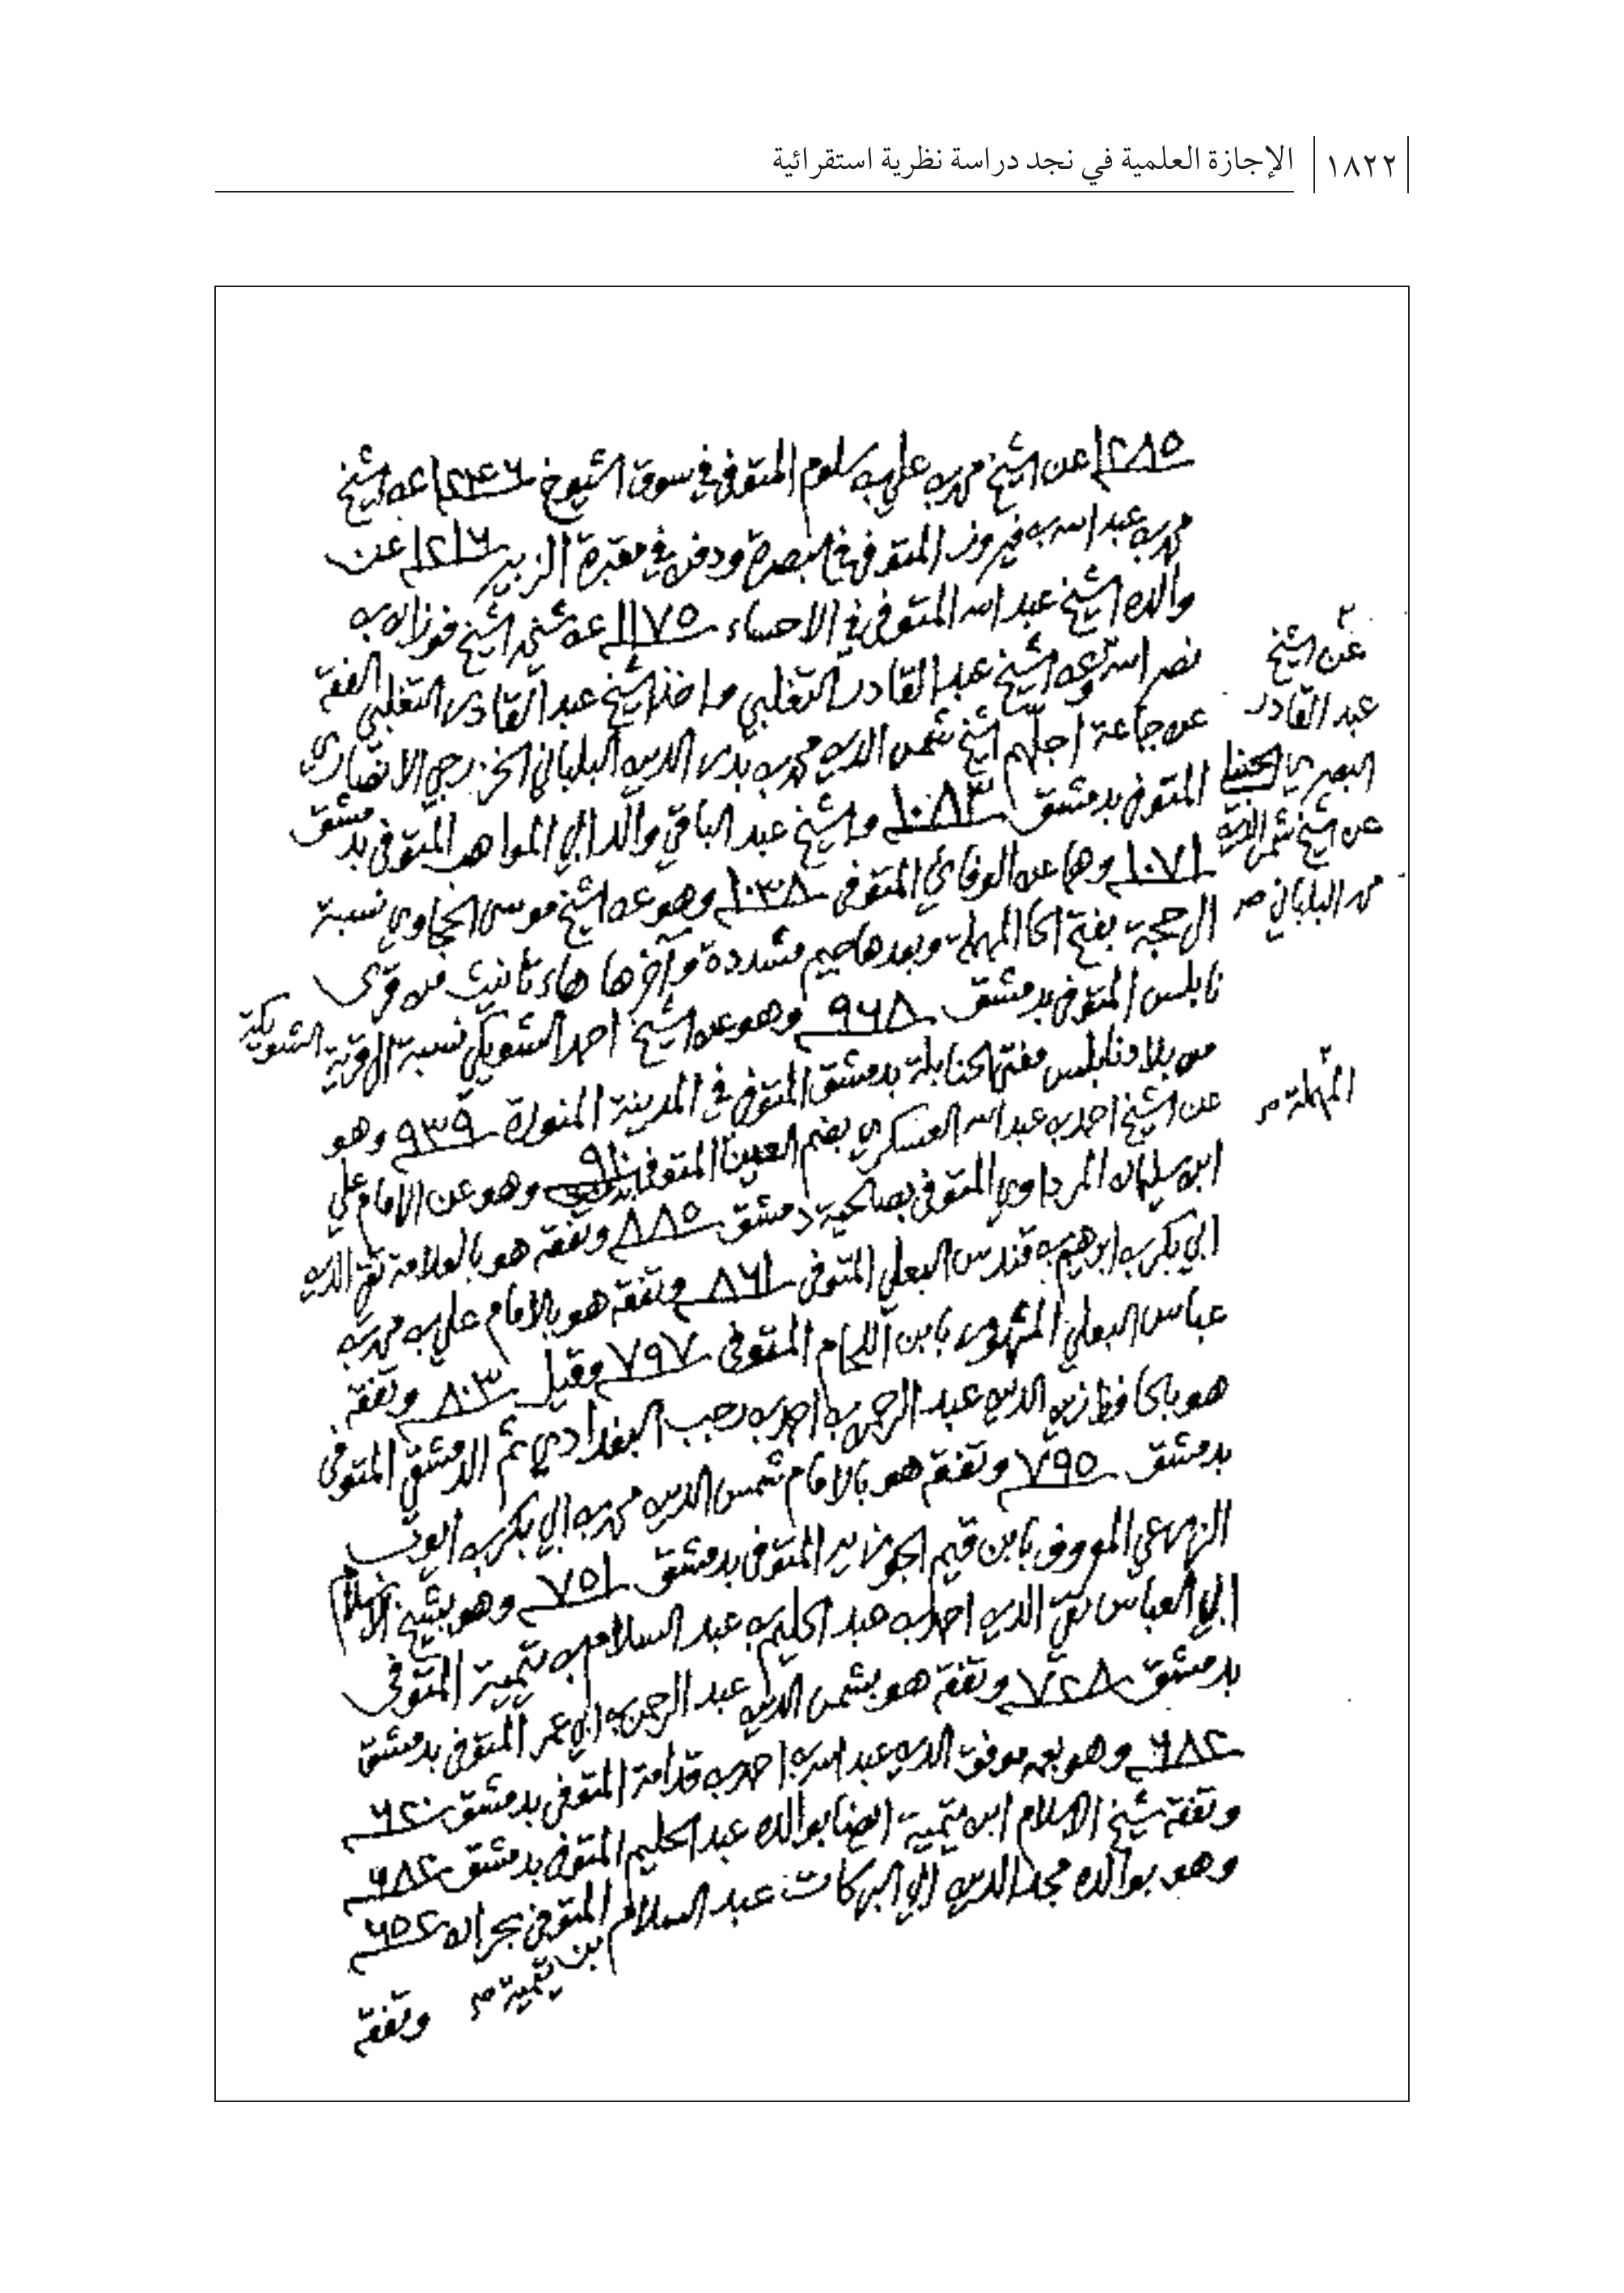 ١٨٢٢ الإجازة العلمية في نجد دراسة نظرية استقرائية
١٢٨٥ عن الشيخ محمد بن علي بن سلوم المتوفى في سوق الشيوخ ١٢٤٦ عن الشيخ
محمد بن عبد الله بن فيروز المتوفى في البصرة ودفن في مقبرة الزبير ١٢١٦ عن
والده الشيخ عبد الله المتوفى في الاحساء ١١٧٥ عن شيخه الشيخ فوزان بن
نصر الله عن الشيخ عبد القادر التغلبي واخذ الشيخ عبد القادر التغلبي الفقه
عن جماعة اجلهم الشيخ شمس الدين محمد بن بدر الدين البلباني الخزرجي الانصاري
المتوفى بدمشق ١٠٨٣ والشيخ عبد الباقي والد ابي المواهب المتوفى بدمشق
١٠٧١ وهما عن الوفائي المتوفى ١٠٣٨ وهو عن الشيخ موسى الحجاوي نسبة
الى حجة بفتح الحا المهملة وبعدها جيم مشددة وآخرها هاء تانيث من قرى
نابلس المتوفى بدمشق ٩٦٨ وهو عن الشيخ احمد الشويكي نسبة الى قرية الشويكة
من بلاد نابلس مفتي الحنابلة بدمشق المتوفى في المدينة المنورة ٩٣٩ وهو
عن الشيخ احمد بن عبد الله العسكري بضم العين المتوفى ٩١٠ وهو عن الامام علي
ابن سليمان المرداوي المتوفى بصالحية دمشق ٨٨٥ وتفقه هو بالعلامة تقي الدين
ابي بكر بن ابرهيم بن قندس البعلي المتوفى ٨٦١ وتفقه هو بالامام علي بن محمد بن
عباس البعلي المشهور بابن اللحام المتوفى ٧٩٧ وقيل ٨٠٣ وتفقه
هو بالحافظ زين الدين عبد الرحمن بن احمد بن رجب البغدادي ثم الدمشقي المتوفى
بدمشق ٧٩٥ وتفقه هو بالامام شمس الدين محمد بن ابي بكر بن ايوب
الزرعي المعروف بابن قيم الجوزية المتوفى بدمشق ٧٥١ وهو بشيخ الاسلام
ابي العباس تقي الدين احمد بن عبد الحليم بن عبد السلام بن تيمية المتوفى
بدمشق ٧٢٨ وتفقه هو بشمس الدين عبد الرحمن بن ابي عمر المتوفى بدمشق
٦٨٢ وهو بعمه موفق الدين عبد الله بن احمد بن قدامة المتوفى بدمشق ٦٢٠
وتفقه شيخ الاسلام ابن تيمية ايضا بوالده عبد الحليم المتوفى بدمشق ٦٨٢
وهو بوالده مجد الدين ابي البركات عبد السلام المتوفى بحران ٦٥٢
بن تيمية صح
وتفقه
عن الشيخ
عبد القادر
البصري الحنبلي
عن الشيخ شمس الدين
محمد البلباني صح
المهملة صح